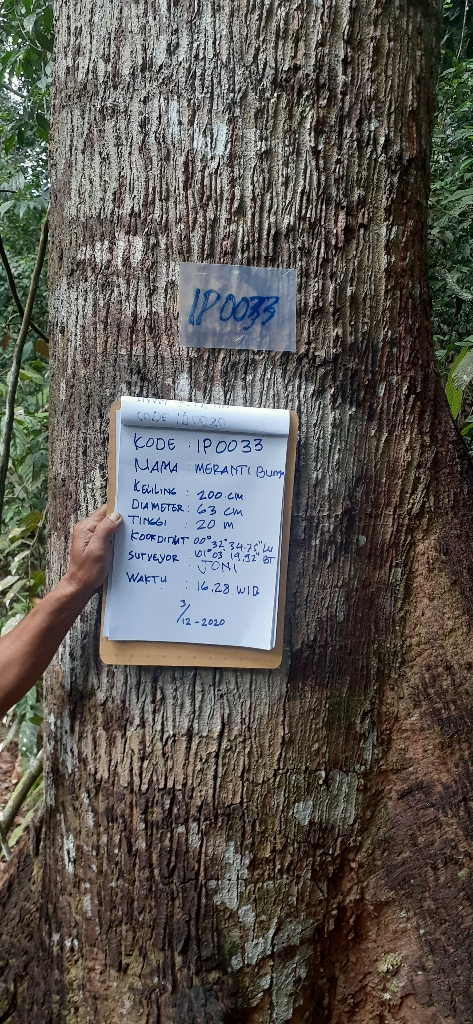 IP0033
CODE IP0030
KODE : IP0033
NAMA : MERANTI Bunga
KELILING : 200 CM
DIAMETER : 63 CM
TINGGI : 20 M
KOORDINAT 00° 32' 34.75" LU
101° 03' 19.92" BT
SURVEYOR : JONI
WAKTU : 16.28 WIB
3/12-2020